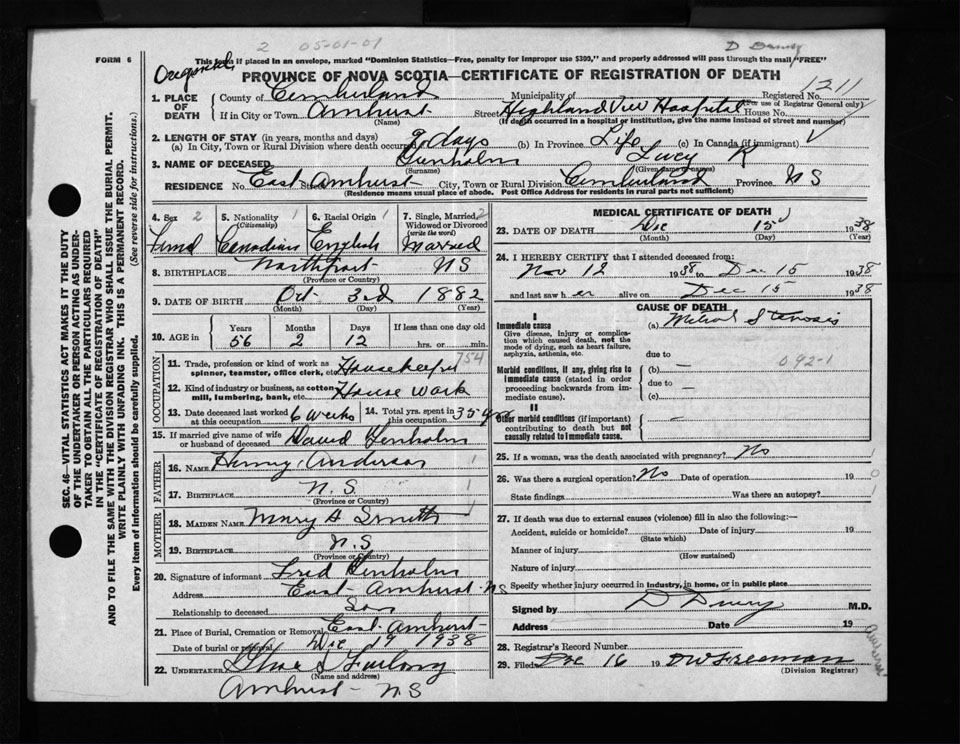 2 05-01-01
D Drury
FORM 6
This form if placed in an envelope, marked "Dominion Statistics—Free, penalty for improper use $300," and properly addressed will pass through the mail "FREE"
Original
PROVINCE OF NOVA SCOTIA—CERTIFICATE OF REGISTRATION OF DEATH
1211
1. PLACE OF DEATH
County of Cumberland Municipality of Registered No.
(For use of Registrar General only)
If in City or Town Amherst Street Highland View Hospital House No.
(Name) (If death occurred in a hospital or institution, give the name instead of street and number)
2. LENGTH OF STAY (in years, months and days)
(a) In City, Town or Rural Division where death occurred 9 days (b) In Province Life (c) In Canada (if immigrant)
3. NAME OF DECEASED Lucy R
(Surname) (Given names)
RESIDENCE No. East Amherst Street City, Town or Rural Division Cumberland Province N S
(Residence means usual place of abode. Post Office Address for residents in rural parts not sufficient)
SEC. 46—VITAL STATISTICS ACT MAKES IT THE DUTY
OF THE UNDERTAKER OR PERSON ACTING AS UNDER-
TAKER TO OBTAIN ALL THE PARTICULARS REQUIRED
IN THE "CERTIFICATE OF REGISTRATION OF DEATH"
AND TO FILE THE SAME WITH THE DIVISION REGISTRAR WHO SHALL ISSUE THE BURIAL PERMIT.
WRITE PLAINLY WITH UNFADING INK. THIS IS A PERMANENT RECORD.
Every item of information should be carefully supplied. (See reverse side for instructions.)
4. Sex 2
5. Nationality 1
(Citizenship)
Canadian
6. Racial Origin 1
English
7. Single, Married, Widowed or Divorced 2
(write the word)
Married
8. BIRTHPLACE Northport N S
(Province or Country)
9. DATE OF BIRTH Oct 3rd 1882
(Month) (Day) (Year)
10. AGE in Years Months Days If less than one day old
56 2 12 hrs. or min.
OCCUPATION
11. Trade, profession or kind of work as spinner, teamster, office clerk, etc. Housekeeper 754
12. Kind of industry or business, as cotton mill, lumbering, bank, etc. House work
13. Date deceased last worked at this occupation 6 weeks
14. Total yrs. spent in this occupation 35 yrs
15. If married give name of wife or husband of deceased David
FATHER
16. NAME Henry Anderson 1
17. BIRTHPLACE N. S 1
(Province or Country)
MOTHER
18. MAIDEN NAME Mary A Smith 1
19. BIRTHPLACE N. S
(Province or Country)
20. Signature of informant Fred
Address East Amherst NS
Relationship to deceased Son
21. Place of Burial, Cremation or Removal East Amherst
Date of burial or removal Dec 17 1938
22. UNDERTAKER Furlong
(Name and address)
Amherst N S
MEDICAL CERTIFICATE OF DEATH
23. DATE OF DEATH Dec 15 1938
(Month) (Day) (Year)
24. I HEREBY CERTIFY that I attended deceased from:
Nov 12 1938 to Dec 15 1938
and last saw h er alive on Dec 15 1938
CAUSE OF DEATH
I
Immediate cause
Give disease, injury or complication which caused death, not the mode of dying, such as heart failure, asphyxia, asthenia, etc.
(a) Mitral Stenosis
due to
092-1
Morbid conditions, if any, giving rise to immediate cause (stated in order proceeding backwards from immediate cause).
(b) —
due to —
(c)
II
Other morbid conditions (if important) contributing to death but not causally related to immediate cause.
—
25. If a woman, was the death associated with pregnancy? No
26. Was there a surgical operation? No Date of operation 19
State findings Was there an autopsy?
27. If death was due to external causes (violence) fill in also the following:—
Accident, suicide or homicide? Date of injury 19
(State which)
Manner of injury
(How sustained)
Nature of injury
Specify whether injury occurred in industry, in home, or in public place
Signed by D Drury M.D.
Address Date 19
Amherst
28. Registrar's Record Number
29. Filed Dec 16 19 DW Freeman
(Division Registrar)